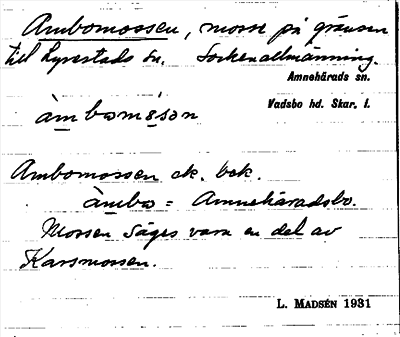 Ambomossen, mosse på gränsen
till Lyrestads sn. Sockenallmänning.
Amnehärads sn.
Vadsbo hd. Skar. l.
àmboməsən
Ambomossen ek. bek.
àmbo = Amnehäradsbo.
Mossen säges vara en del av
Karsmossen.
L. MADSÉN 1931